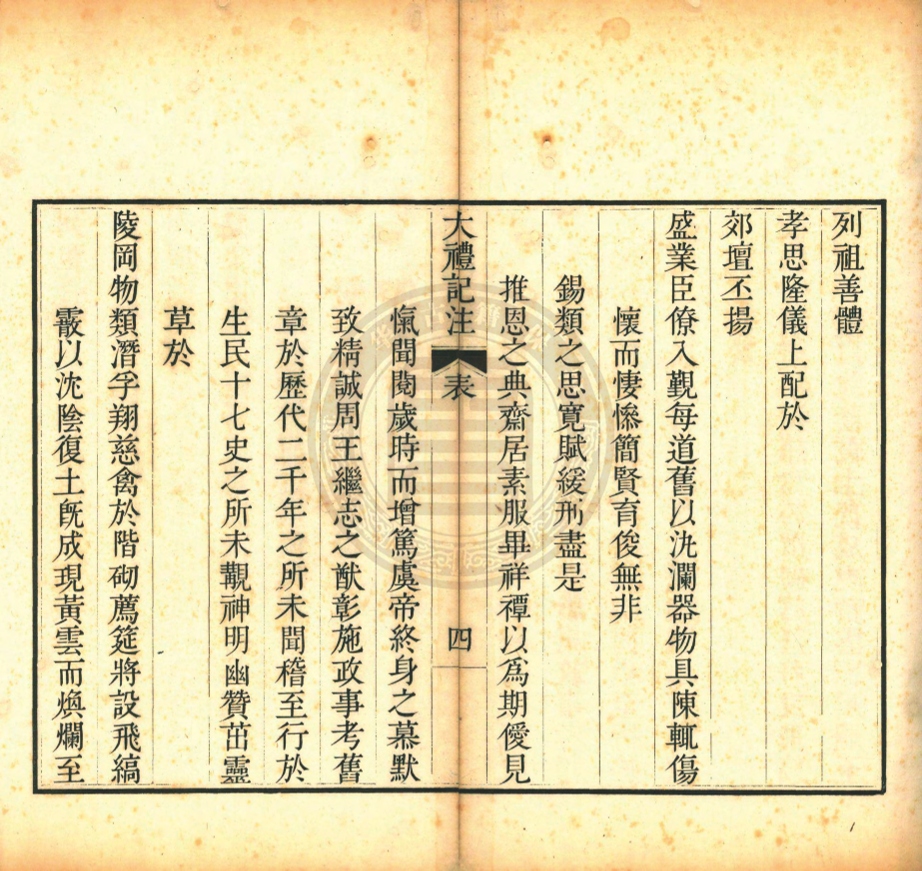 列祖善體
孝思隆儀上配於
郊壇丕揚
盛業臣僚入覲每道舊以汍瀾器物具陳輒傷
懷而悽慘簡賢育俊無非
錫類之思寬賦緩刑盡是
推恩之典齋居素服畢祥禫以為期僾見
大禮記注 表 四
愾聞閱歲時而增篤虞帝終身之慕默
致精誠周王繼志之猷彰施政事考舊
章於歷代二千年之所未聞稽至行於
生民十七史之所未覯神明幽贊茁靈
草於
陵岡物類潛孚翔慈禽於階砌薦筵將設飛縞
霰以沈陰復土旣成現黃雲而煥爛至